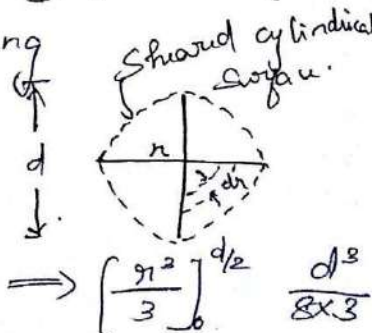 ng
Sheared cylindrical
surface.
d
r
r
dr
⇒ [r³/3]₀^{d/2} d³/8×3